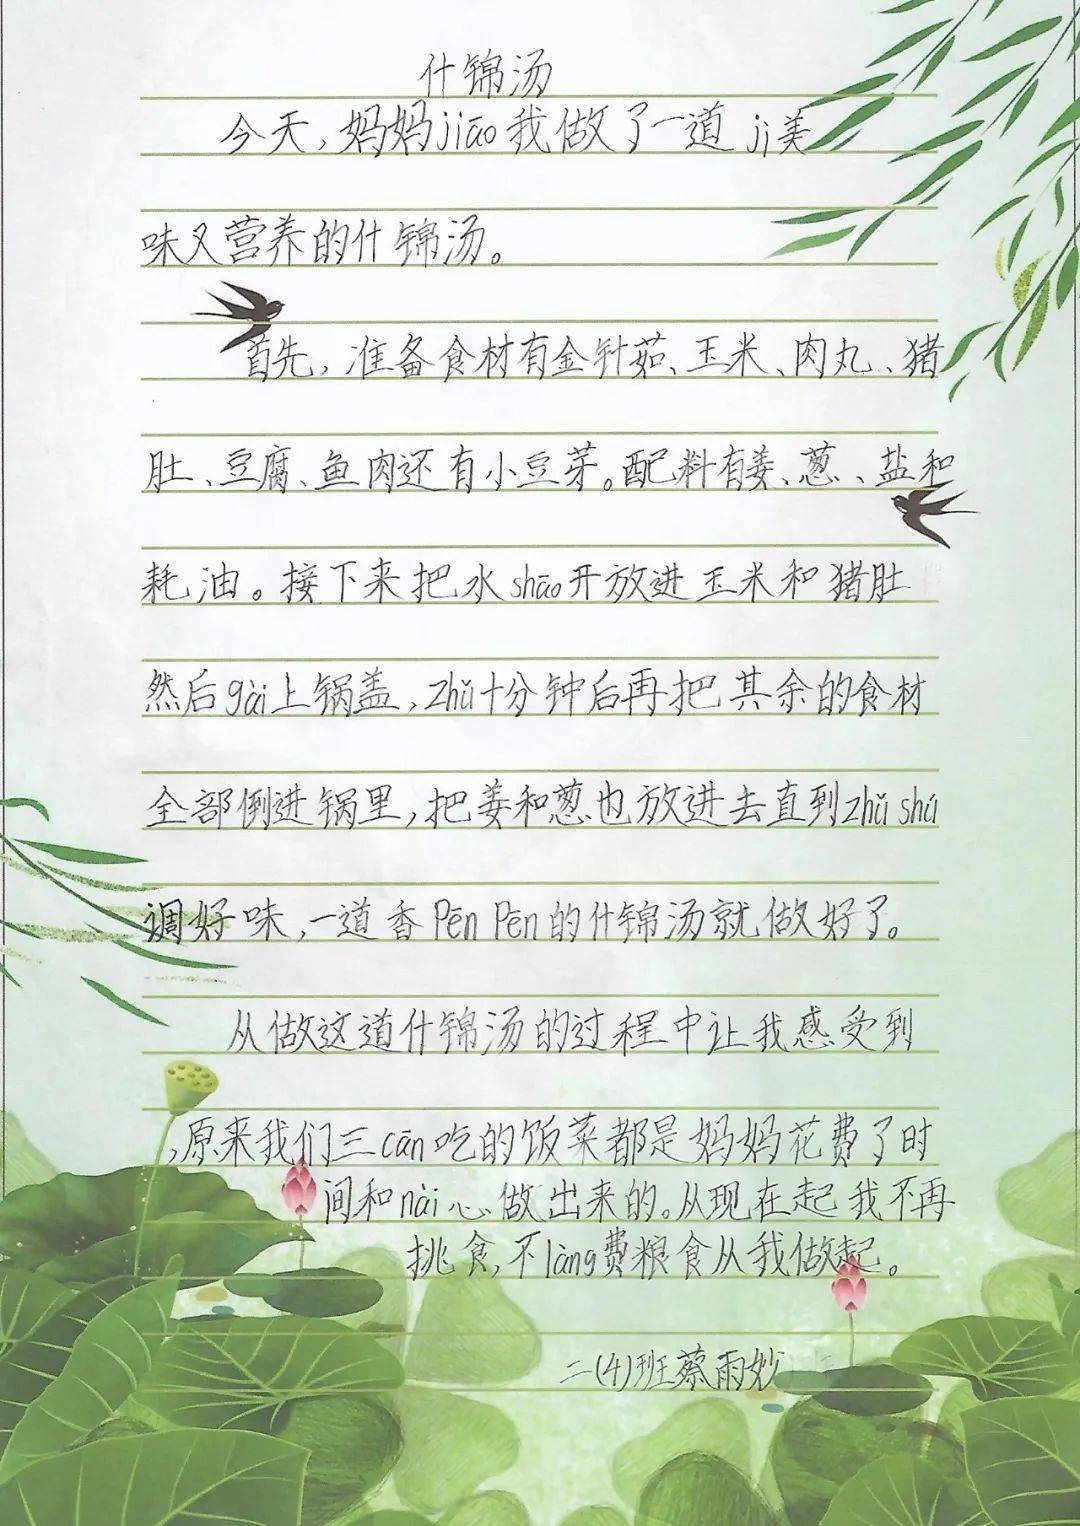 什锦汤
今天,妈妈jiāo我做了一道jì美
味又营养的什锦汤。
首先,准备食材有金针茹、玉米、肉丸、猪
肚、豆腐、鱼肉还有小豆芽。配料有姜、葱、盐和
耗油。接下来把水shāo开放进玉米和猪肚
然后gài上锅盖,zhǔ十分钟后再把其余的食材
全部倒进锅里,把姜和葱也放进去直到zhǔ shú
调好味,一道香Pēn Pēn的什锦汤就做好了。
从做这道什锦汤的过程中让我感受到
,原来我们三cān吃的饭菜都是妈妈花费了时
间和nài心做出来的。从现在起我不再
挑食,不làng费粮食从我做起。
二(4)班蔡雨妙